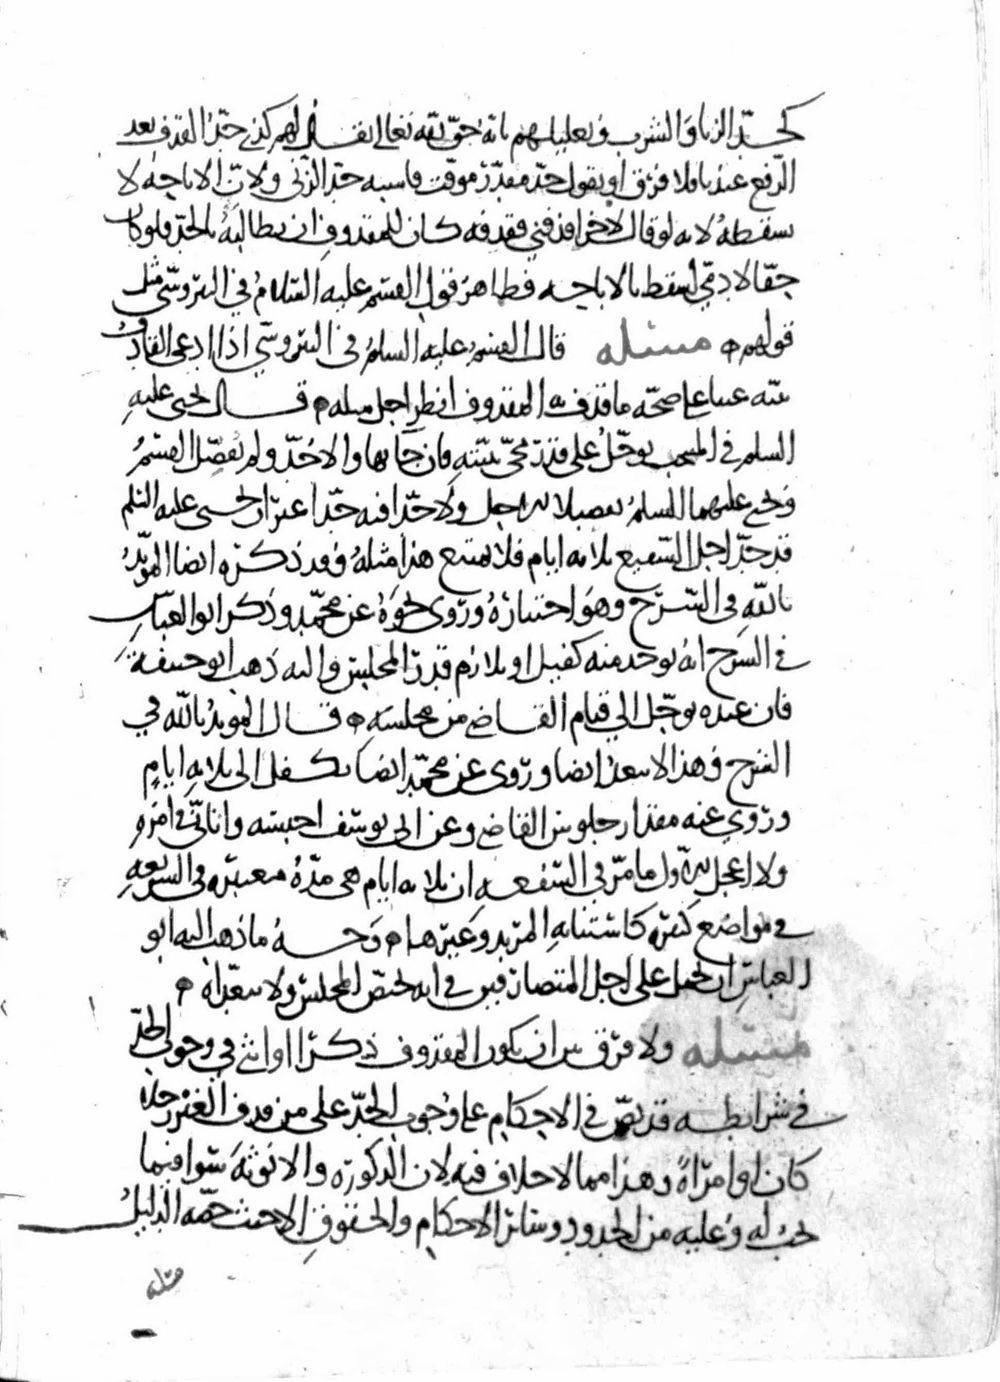 كحد الزنا والشرب في تعليلهم بانه حق لله تعالى يقال لهم كذى حد القذف بعد
الرفع عندنا فلا فرق او يقول حد مقدر موقت فاشبه حد الزنى ولان الاباحة لا
تسقطه لانه لو قال لآخر اقذفني فقذفه كان للمقذوف ان يطالبه بالحد فلو كان
حقا لادمي لسقط بالاباحه فظاهر قول القسم عليه السلام في النيروسي مثل
قولهم مسئله قال القسم عليه السلم في النيروسي اذا ادعى القاذف
بينه على صحة ما قذف به المقذوف انظر اجل مثله قال يحيى عليه
السلم في المنتخب يوجل على قدر مجي بينته فان جا بها والا حد ولم يفصل القسم
ويحيى عليهما السلم تفصيلا اجل ولا حدا فيه حدا غير ان يحيى عليه السلم
قد حد اجل الشفيع ثلاثه ايام فلا يمتنع هذا مثله وقد ذكره ايضا المويد
بالله في الشرح وهو اختياره وروى نحوه عن محمد وذكر ابو العباس
في الشرح انه يوخذ منه كفيل او يلازم قدر المجلس واليه ذهب ابو حنيفة
فان عنده يوجل الى قيام القاضي من مجلسه قال المويد بالله في
الشرح وهذا لا يبعد ايضا وروى عن محمد ايضا يكفل الى ثلاثه ايام
وروي عنه مقدار جلوس القاضي وعن ابي يوسف احبسه واتانى في امره
ولا اعجل الاول ما مر في الشفعه ان ثلاثه ايام هي مدة معتبره في الشريعه
في مواضع كثيره كاستتابه المرتد وغيرها وجه ما ذهب اليه ابو
العباس ان يحمل على اجل المتصارفين في انه يختص المجلس ولا يتعداه
مسئله ولا فرق بين ان يكون المقذوف ذكرا او انثى في وجوب الحد
في شرايطه قد نص في الاحكام على وجوب الحد على من قذف الغير رجلا
كان او امراة وهذا مما لا خلاف فيه لان الذكورة والانوثة سوا فيما
يجب له وعليه من الحدود وسائر الاحكام والحقوق الا حيث خصه الدليل
مسله